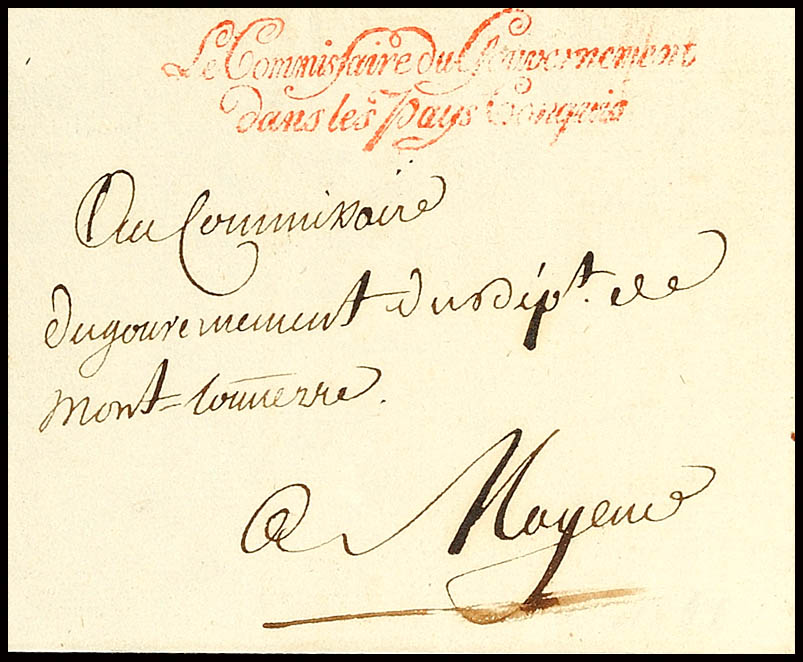 Le Commissaire du Gouvernement
dans les Pays Conquis
Au Commissaire
du gouvernement du Dépt. de
Mont-tonnerre.
a Mayence